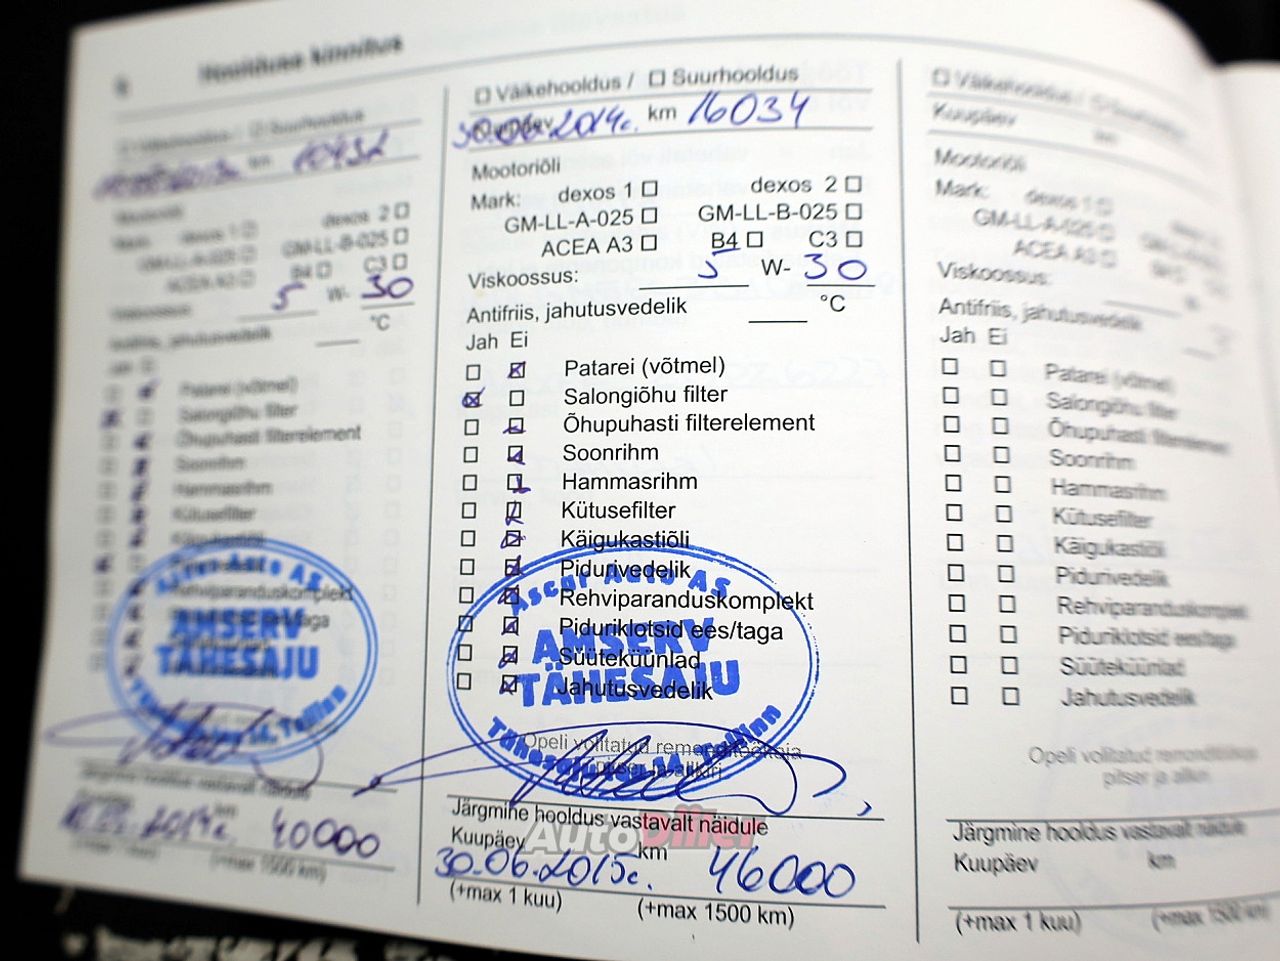 8 Hoolduse kinnitus
☐ Väikehooldus / ☐ Suurhooldus
km 10432
Mootoriõli
Mark: dexos 1 ☐ dexos 2 ☐
GM-LL-A-025 ☐ GM-LL-B-025 ☐
ACEA A3 ☐ B4 ☐ C3 ☐
Viskoossus: 5 W- 30
Antifriis, jahutusvedelik °C
Jah Ei
Patarei (võtmel)
Salongiõhu filter
Õhupuhasti filterelement
Soonrihm
Hammasrihm
Kütusefilter
Käigukastiõli
Rehviparanduskomplekt
Ascar Auto AS
AMSERV
TÄHESAJU
Tallinn
Järgmine hooldus vastavalt näidule
km
2014c. 40000
(+max 1 kuu) (+max 1500 km)
☐ Väikehooldus / ☐ Suurhooldus
Kuupäev 30.06.2014c. km 16034
Mootoriõli
Mark: dexos 1 ☐ dexos 2 ☐
GM-LL-A-025 ☐ GM-LL-B-025 ☐
ACEA A3 ☐ B4 ☐ C3 ☐
Viskoossus: 5 W- 30
Antifriis, jahutusvedelik °C
Jah Ei
Patarei (võtmel)
Salongiõhu filter
Õhupuhasti filterelement
Soonrihm
Hammasrihm
Kütusefilter
Käigukastiõli
Pidurivedelik
Rehviparanduskomplekt
Piduriklotsid ees/taga
Süüteküünlad
Jahutusvedelik
Ascar Auto AS
AMSERV
TÄHESAJU
Tähesaju tee 14, Tallinn
Opeli volitatud remonditöökoja
pitser ja allkiri
Järgmine hooldus vastavalt näidule
AutoDiiler
Kuupäev km
30.06.2015c. 46000
(+max 1 kuu) (+max 1500 km)
☐ Väikehooldus / ☐ Suurhooldus
Kuupäev km
Mootoriõli
Mark: dexos 1 ☐
GM-LL-A-025 ☐
ACEA A3 ☐
Viskoossus:
Antifriis, jahutusvedelik
Jah Ei
Patarei (võtmel)
Salongiõhu filter
Õhupuhasti filterelement
Soonrihm
Hammasrihm
Kütusefilter
Käigukastiõli
Pidurivedelik
Rehviparanduskomplekt
Piduriklotsid ees/taga
Süüteküünlad
Jahutusvedelik
Opeli volitatud remonditöökoja
pitser ja allkiri
Järgmine hooldus vastavalt näidule
Kuupäev km
(+max 1 kuu) (+max 1500 km)